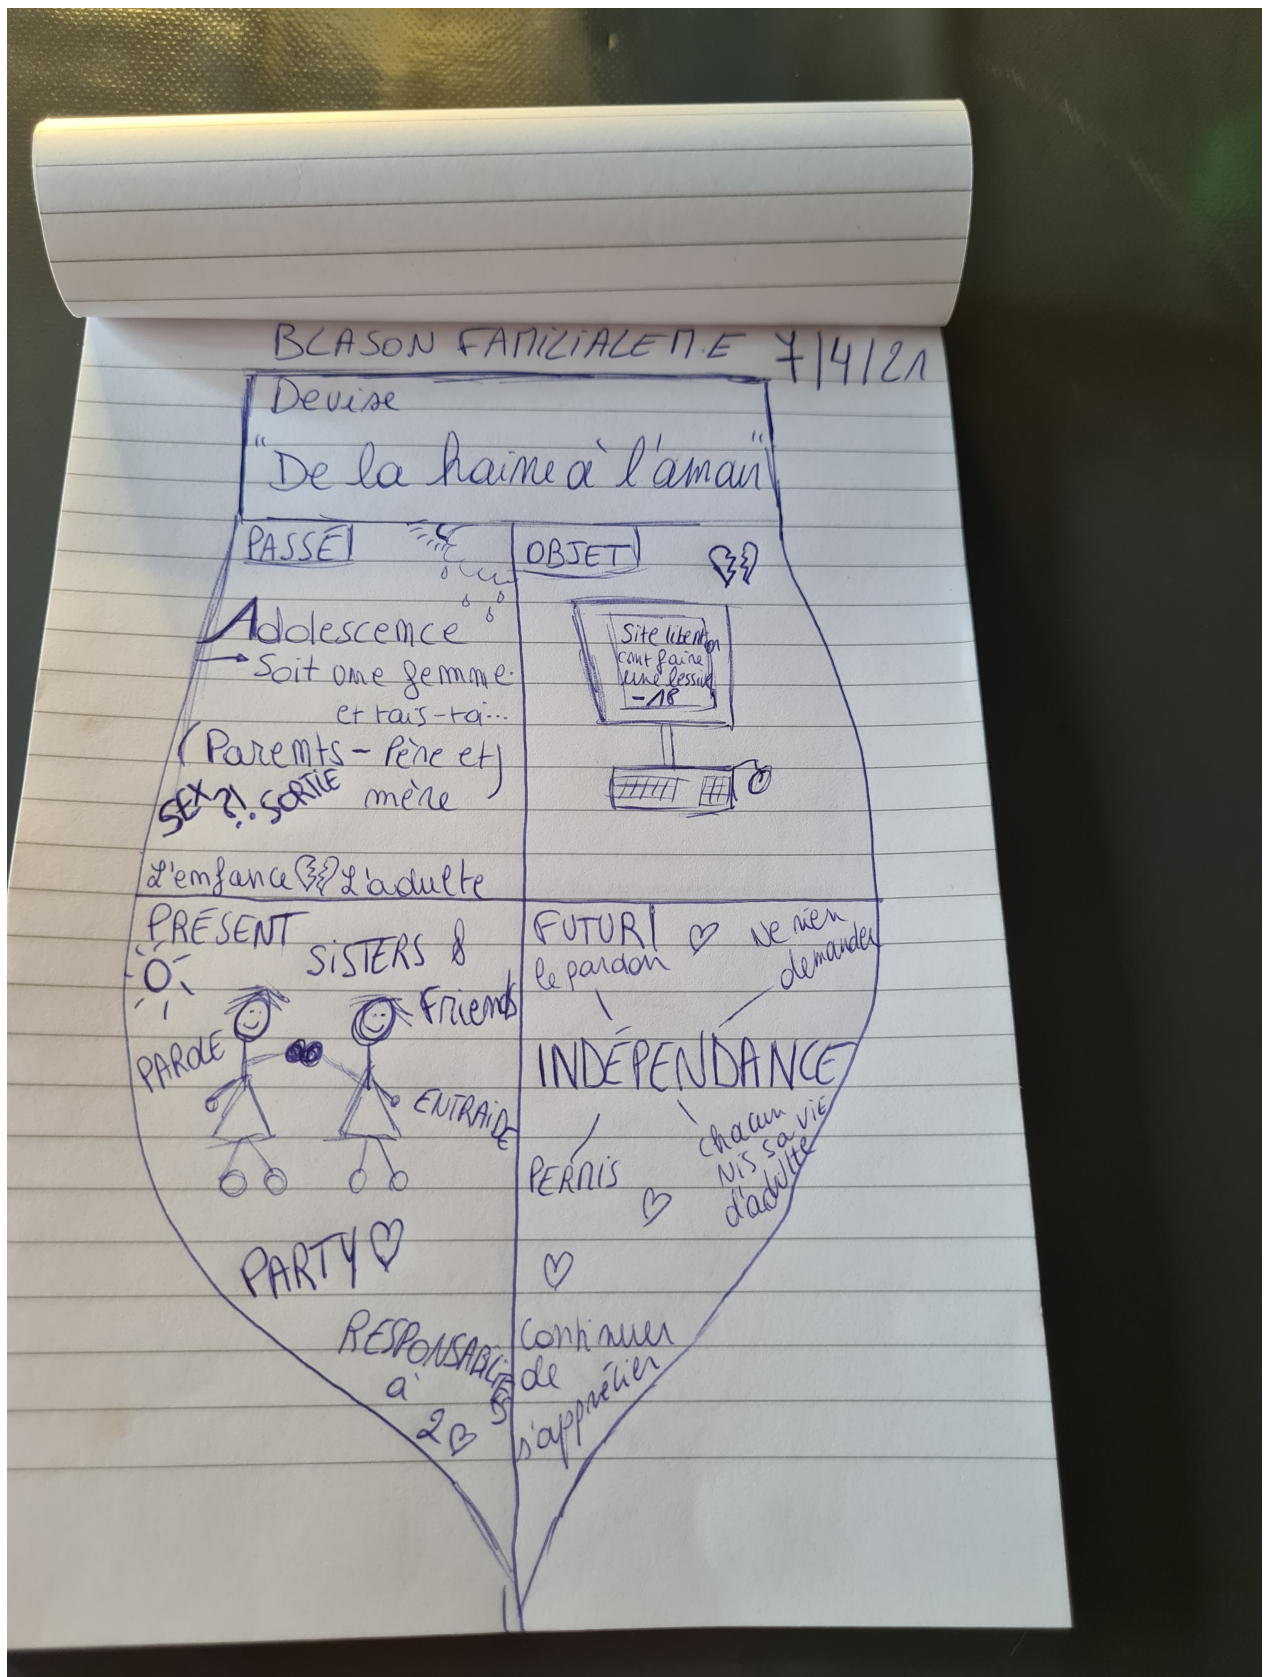 BLASON FAMILIALE M.E 7/4/21
Devise
"De la haine à l'amour"
PASSÉ
Adolescence
→ Soit une femme
et tais-toi...
(Parents - Père et)
mère
SEX ?!. SORTIE
L'enfance L'adulte
OBJET
Site libertin
cont faire
une lessive
-18
PRÉSENT
SISTERS &
Friends
PAROLE
ENTRAIDE
PARTY
RESPONSABILITÉS
à
2
FUTUR
le pardon
Ne rien
demander
INDÉPENDANCE
PERMIS
chacun
vis sa vie
d'adulte
Continuer
de
s'apprécier